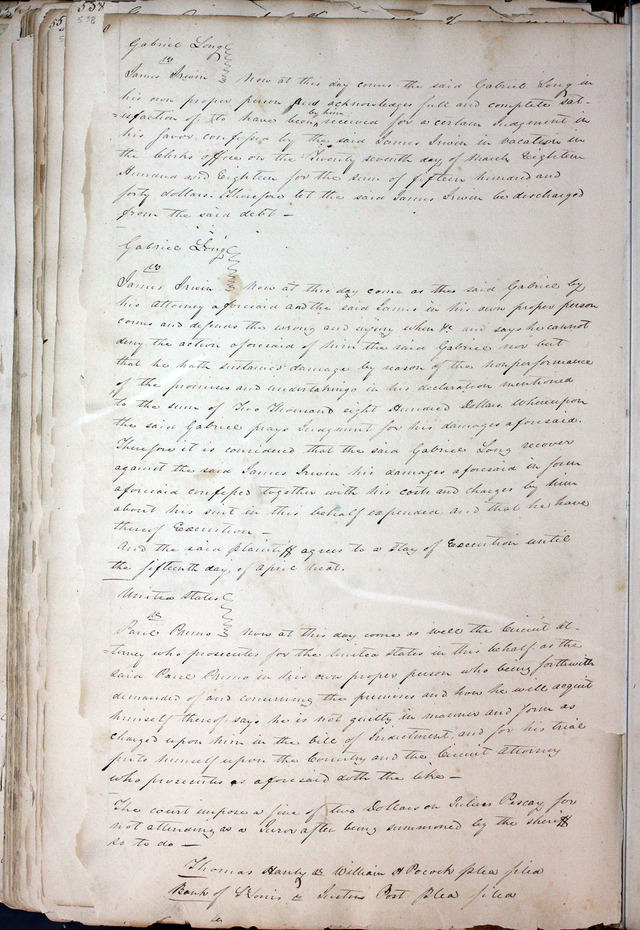 558
558
Gabriel Long
vs
James Irwin Now at this day comes the said Gabriel Long in
his own proper person and acknowledges full and complete sat-
=isfaction of to have been by him received for a certain Judgment in
his favor confessed by the said James Irwin in vacation in
the clerks office on the twenty seventh day of March Eighteen
Hundred and Eighteen for the sum of fifteen hundred and
forty dollars. Therefore let the said James Irwin be discharged
from the said debt —
Gabriel Long
vs
James Irwin Now at this day come as the said Gabriel by
his attorney aforesaid and the said James in his own proper person
comes and defends the wrong and injury when &c and says he cannot
deny the action aforesaid of him the said Gabriel nor but
that he hath sustained damage by reason of the nonperformance
of the promises and undertakings in his declaration mentioned
to the sum of Two Thousand eight Hundred Dollars. Whereupon
the said Gabriel prays Judgment for his damages aforesaid.
Therefore it is considered that the said Gabriel Long recover
against the said James Irwin his damages aforesaid in form
aforesaid confessed together with his costs and charges by him
about his suit in this behalf expended and that he have
thereof Execution —
And the said plaintiff agrees to a stay of Execution until
the fifteenth day of April next.
United States
vs
Paul Primo Now at this day come as well the Circuit at-
=torney who prosecutes for the United States in this behalf as the
said Paul Primo in his own proper person who being forthwith
demanded of and concerning the premises and how he will acquit
himself thereof says he is not guilty in manner and form as
charged upon him in the bill of Indictment, and for his trial
puts himself upon the Country and the Circuit Attorney
who prosecutes as aforesaid doth the like —
The court impose a fine of two Dollars on Julius Pescay for
not attending as a Juror after being summoned by the sheriff
so to do —
Thomas Hanly vs William H Pocock plea filed
Bank of St Louis vs Justus Post plea filed